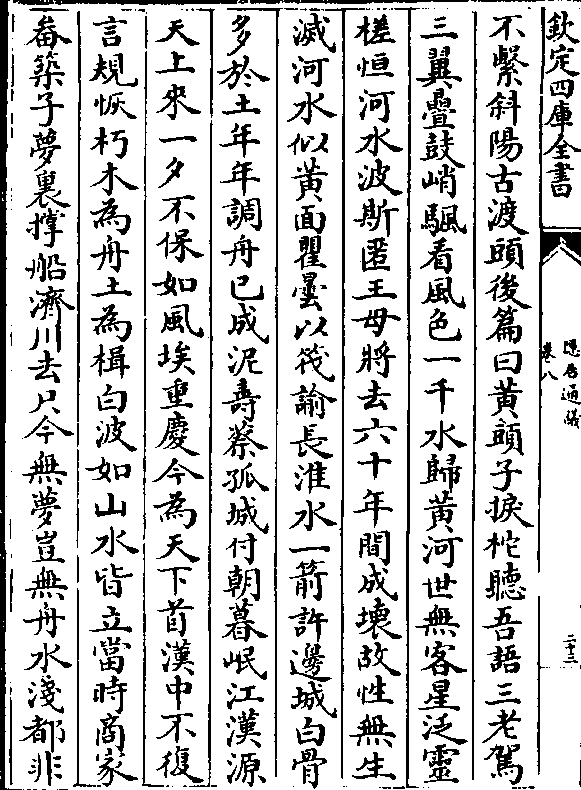 欽定四庫全書
隱居通議
卷八
二十三
不繫斜陽古渡頭後篇曰黃頭子捩柁聽吾語三老駕
三翼疊鼓峭颿看風色一千水歸黃河世無客星泛靈
槎恒河水波斯匿王母將去六十年間成壊故性無生
滅河水似黃面瞿曇以筏諭長淮水一箭許邊城白骨
多於土年年調舟已成泥壽蔡孤城付朝暮岷江漢源
天上來一夕不保如風埃重慶今為天下首漢中不復
言規恢朽木為舟土為楫白波如山水皆立當時商家
畚築子夢裏撑船濟川去只今無夢豈無舟水淺都非